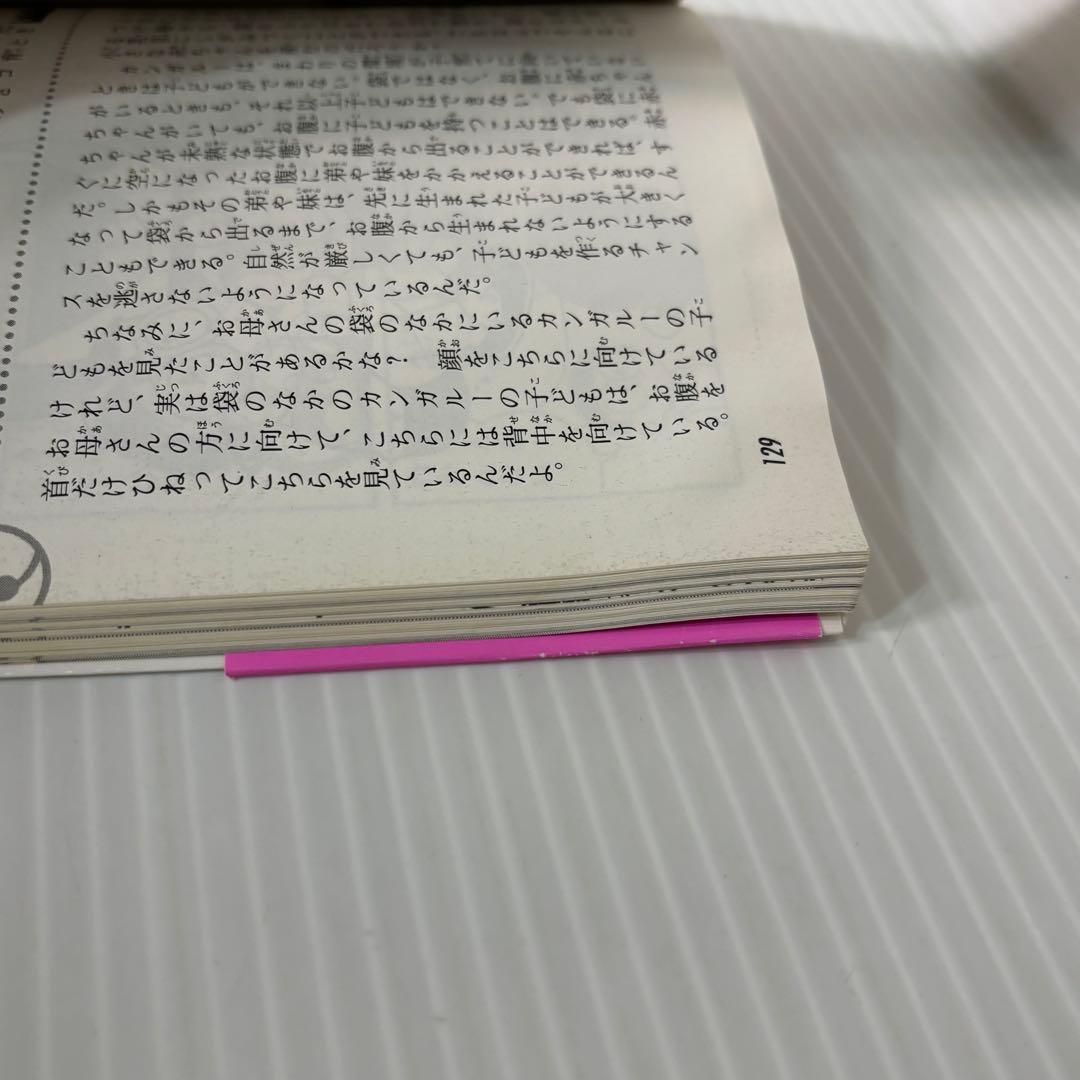 カンガルーは、まわりの
ときは子どもができない。袋ではなく、お腹に赤ちゃん
がいるときも、それ以上子どもはできない。でも袋に赤
ちゃんがいても、お腹に子どもを持つことはできる。赤
ちゃんが未熟な状態でお腹から出ることができれば、す
ぐに空になったお腹に弟や妹をかかえることができるん
だ。しかもその弟や妹は、先に生まれた子どもが大きく
なって袋から出るまで、お腹から生まれないようにする
こともできる。自然が厳しくても、子どもを作るチャン
スを逃さないようになっているんだ。
ちなみに、お母さんの袋のなかにいるカンガルーの子
どもを見たことがあるかな？　顔をこちらに向けている
けれど、実は袋のなかのカンガルーの子どもは、お腹を
お母さんの方に向けて、こちらには背中を向けている。
首だけひねってこちらを見ているんだよ。
129